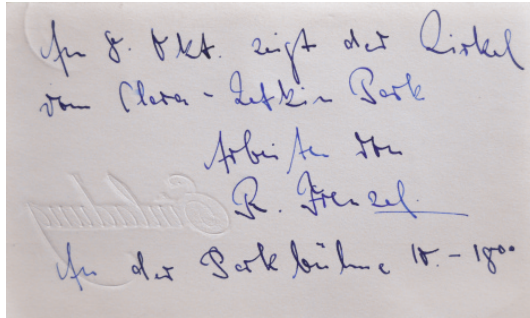 Am 8. Okt. zeigt der Zirkel
vom Clara-Zetkin Park
Arbeiten von
R. Frenzel.
Einladung
An der Parkbühne 10.-18⁰⁰